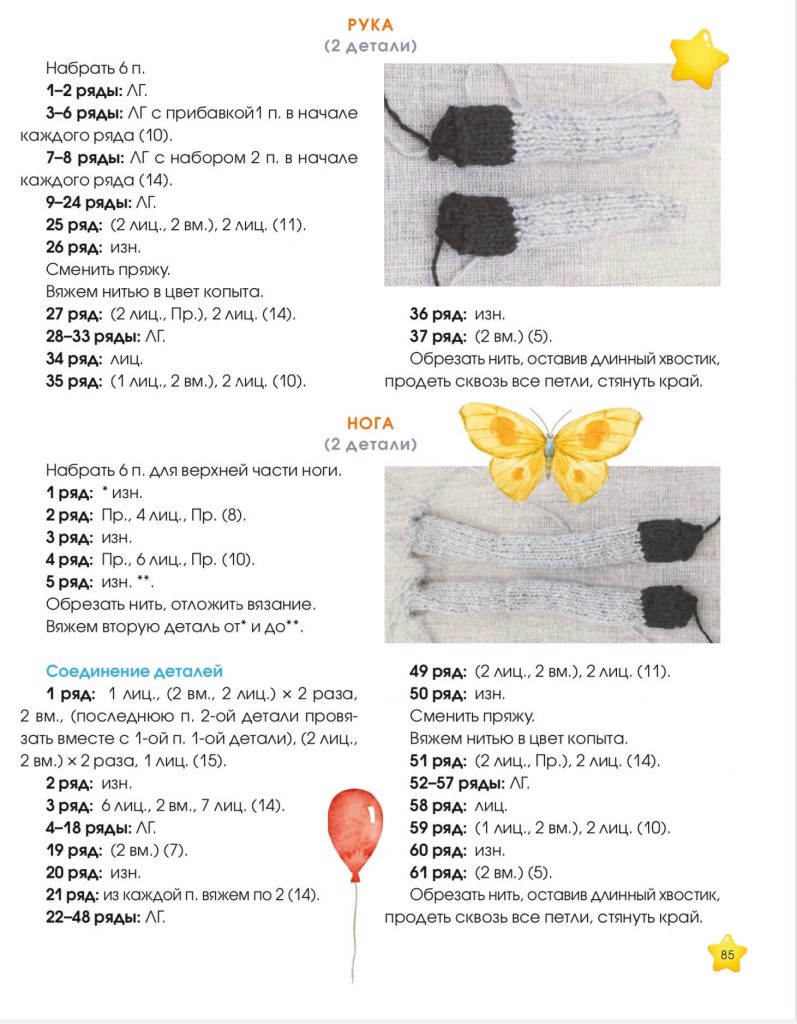 РУКА
(2 детали)
Набрать 6 п.
1–2 ряды: ЛГ.
3–6 ряды: ЛГ с прибавкой1 п. в начале
каждого ряда (10).
7–8 ряды: ЛГ с набором 2 п. в начале
каждого ряда (14).
9–24 ряды: ЛГ.
25 ряд: (2 лиц., 2 вм.), 2 лиц. (11).
26 ряд: изн.
Сменить пряжу.
Вяжем нитью в цвет копыта.
27 ряд: (2 лиц., Пр.), 2 лиц. (14).
28–33 ряды: ЛГ.
34 ряд: лиц.
35 ряд: (1 лиц., 2 вм.), 2 лиц. (10).
36 ряд: изн.
37 ряд: (2 вм.) (5).
Обрезать нить, оставив длинный хвостик,
продеть сквозь все петли, стянуть край.
НОГА
(2 детали)
Набрать 6 п. для верхней части ноги.
1 ряд: * изн.
2 ряд: Пр., 4 лиц., Пр. (8).
3 ряд: изн.
4 ряд: Пр., 6 лиц., Пр. (10).
5 ряд: изн. **.
Обрезать нить, отложить вязание.
Вяжем вторую деталь от* и до**.
Соединение деталей
1 ряд: 1 лиц., (2 вм., 2 лиц.) × 2 раза,
2 вм., (последнюю п. 2-ой детали провя-
зать вместе с 1-ой п. 1-ой детали), (2 лиц.,
2 вм.) × 2 раза, 1 лиц. (15).
2 ряд: изн.
3 ряд: 6 лиц., 2 вм., 7 лиц. (14).
4–18 ряды: ЛГ.
19 ряд: (2 вм.) (7).
20 ряд: изн.
21 ряд: из каждой п. вяжем по 2 (14).
22–48 ряды: ЛГ.
49 ряд: (2 лиц., 2 вм.), 2 лиц. (11).
50 ряд: изн.
Сменить пряжу.
Вяжем нитью в цвет копыта.
51 ряд: (2 лиц., Пр.), 2 лиц. (14).
52–57 ряды: ЛГ.
58 ряд: лиц.
59 ряд: (1 лиц., 2 вм.), 2 лиц. (10).
60 ряд: изн.
61 ряд: (2 вм.) (5).
Обрезать нить, оставив длинный хвостик,
продеть сквозь все петли, стянуть край.
85